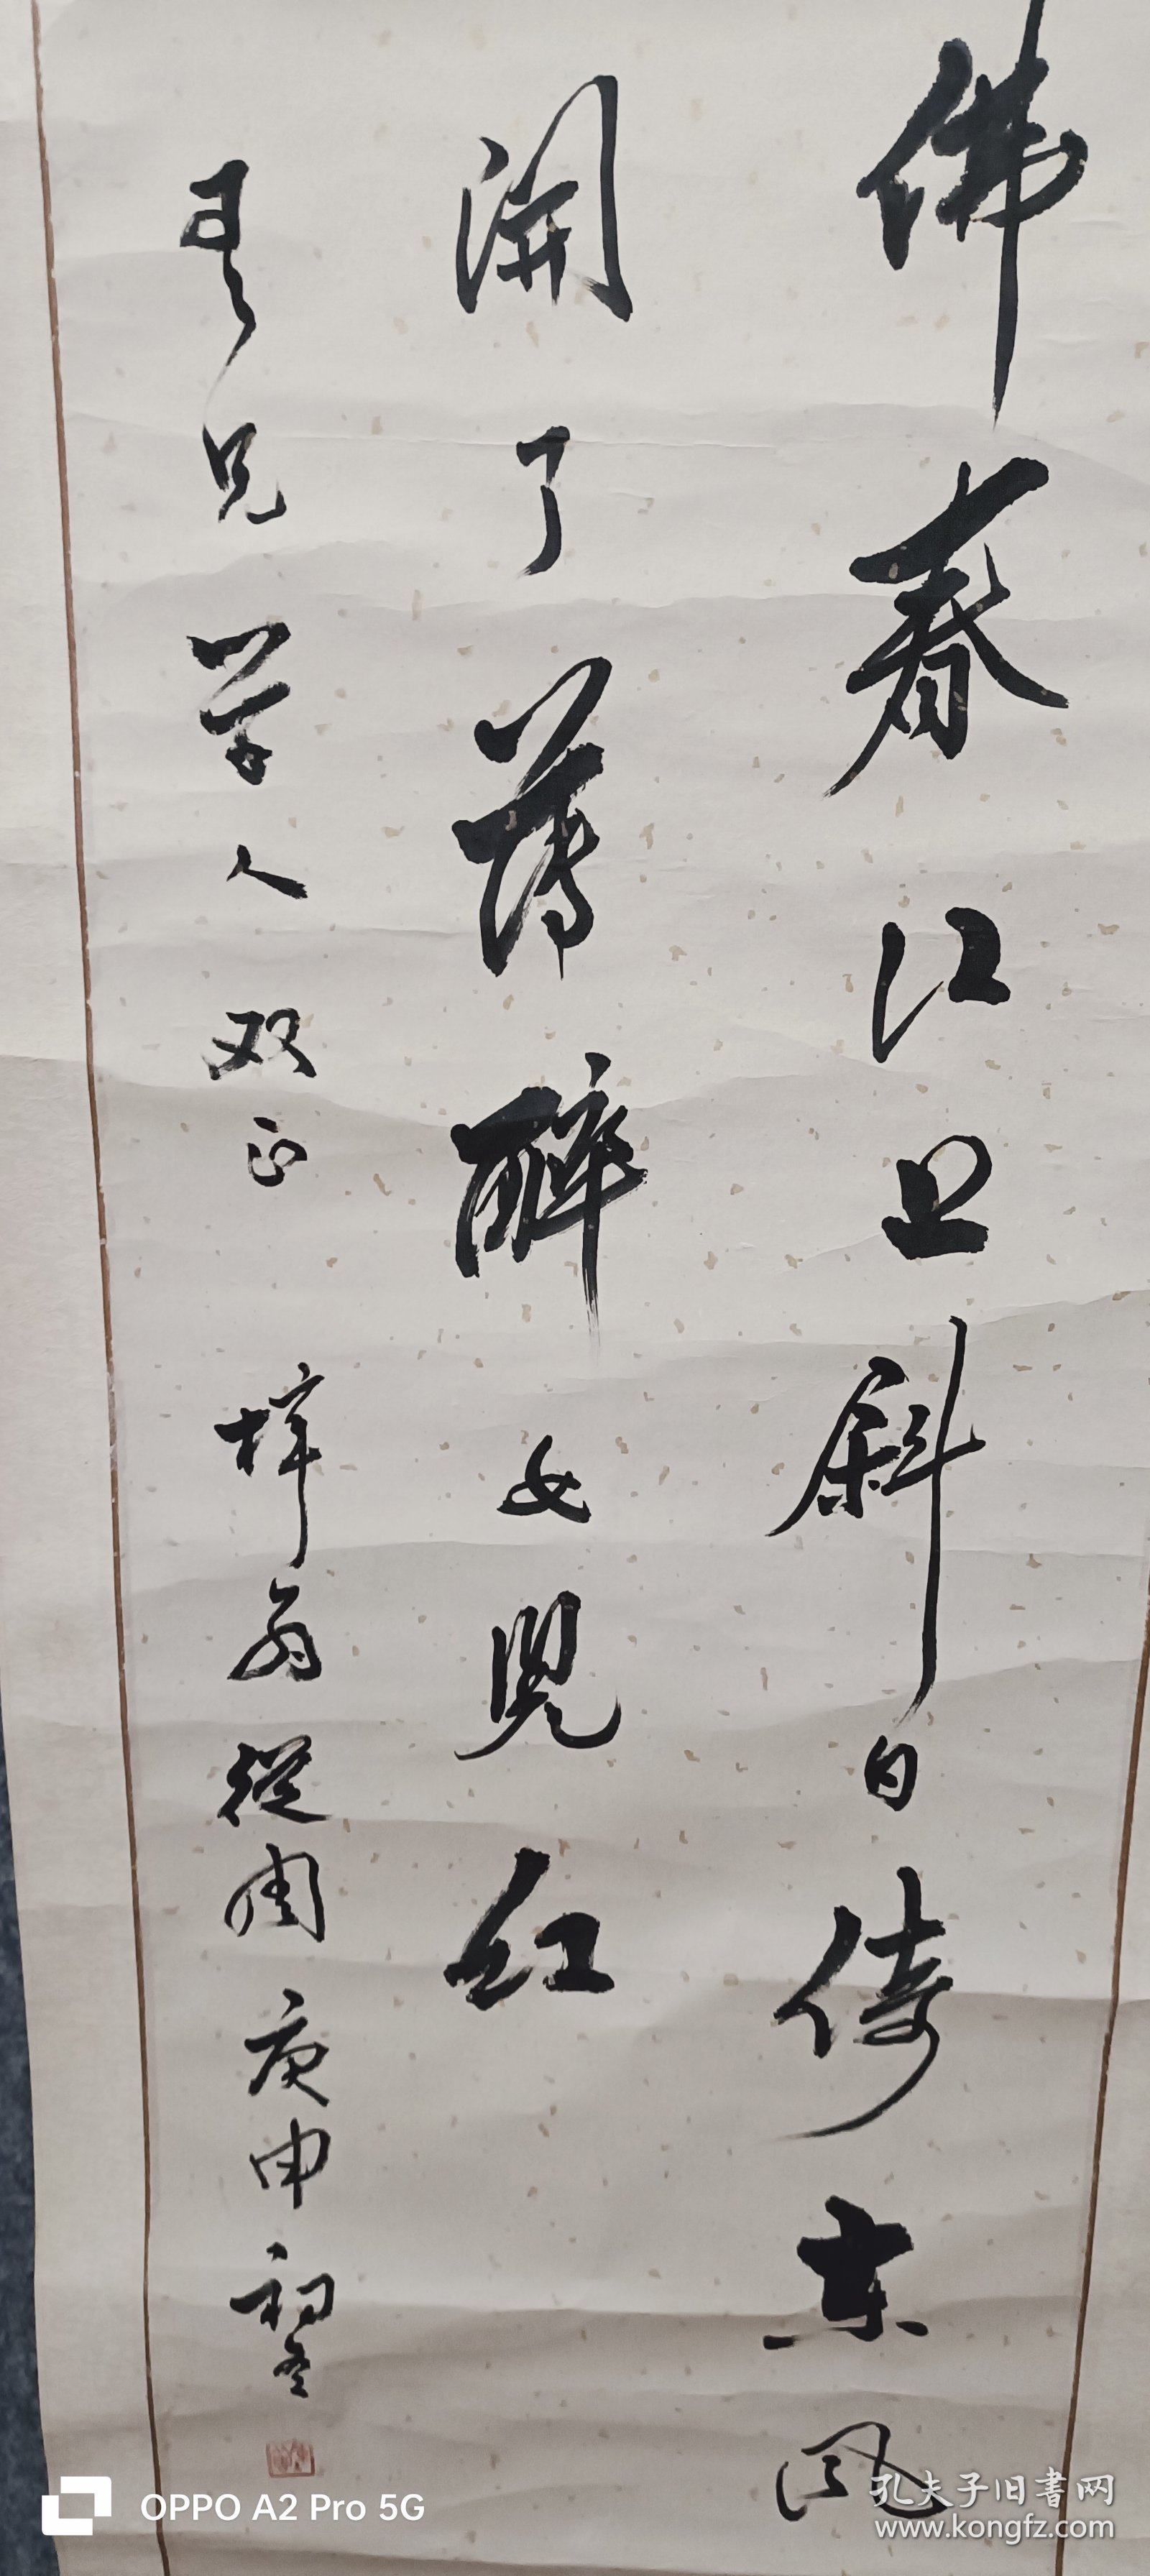 佛春江上斜日倚东风
開了薄醉女兒红
兄学人双正 梓翁從周 庚申初冬
OPPO A2 Pro 5G
孔夫子旧書网
www.kongfz.com